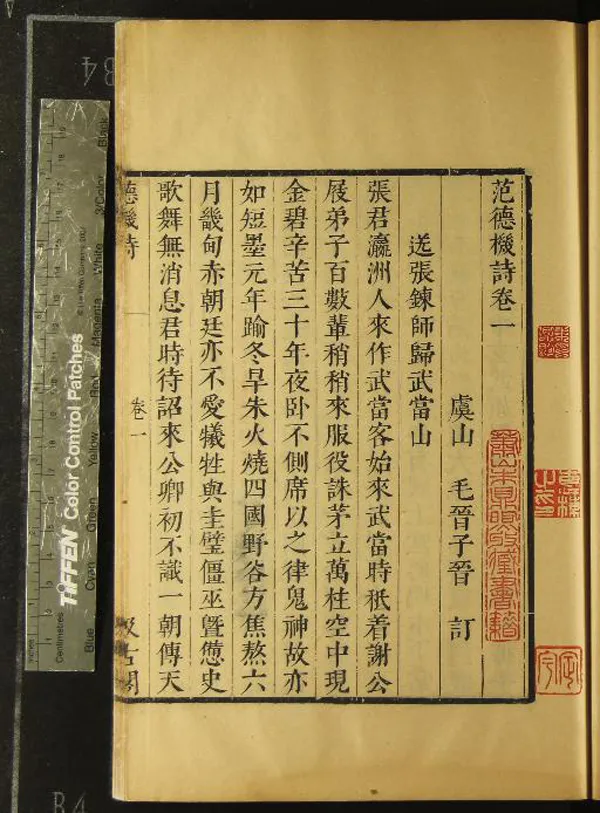 范德機詩卷一
虞山 毛晉子晉 訂
送張鍊師歸武當山
張君瀛洲人來作武當客始來武當時秖着謝公
屐弟子百數輩稍稍來服役誅茅立萬柱空中現
金碧辛苦三十年夜卧不側席以之律鬼神故亦
如短墨元年踰冬旱朱火燒四國野谷方焦熬六
月畿甸赤朝廷亦不愛犧牲與圭璧僵巫曁愆史
歌舞無消息君時待詔來公卿初不識一朝傳天
德機詩
卷一
汲古閣
蕭山朱氏
書籍
B4
B4
TIFFEN Color Control Patches
© The Tiffen Company, 2007
Centimetres
Inches
Blue
Cyan
Green
Yellow
Red
Magenta
White
3/Color
Black